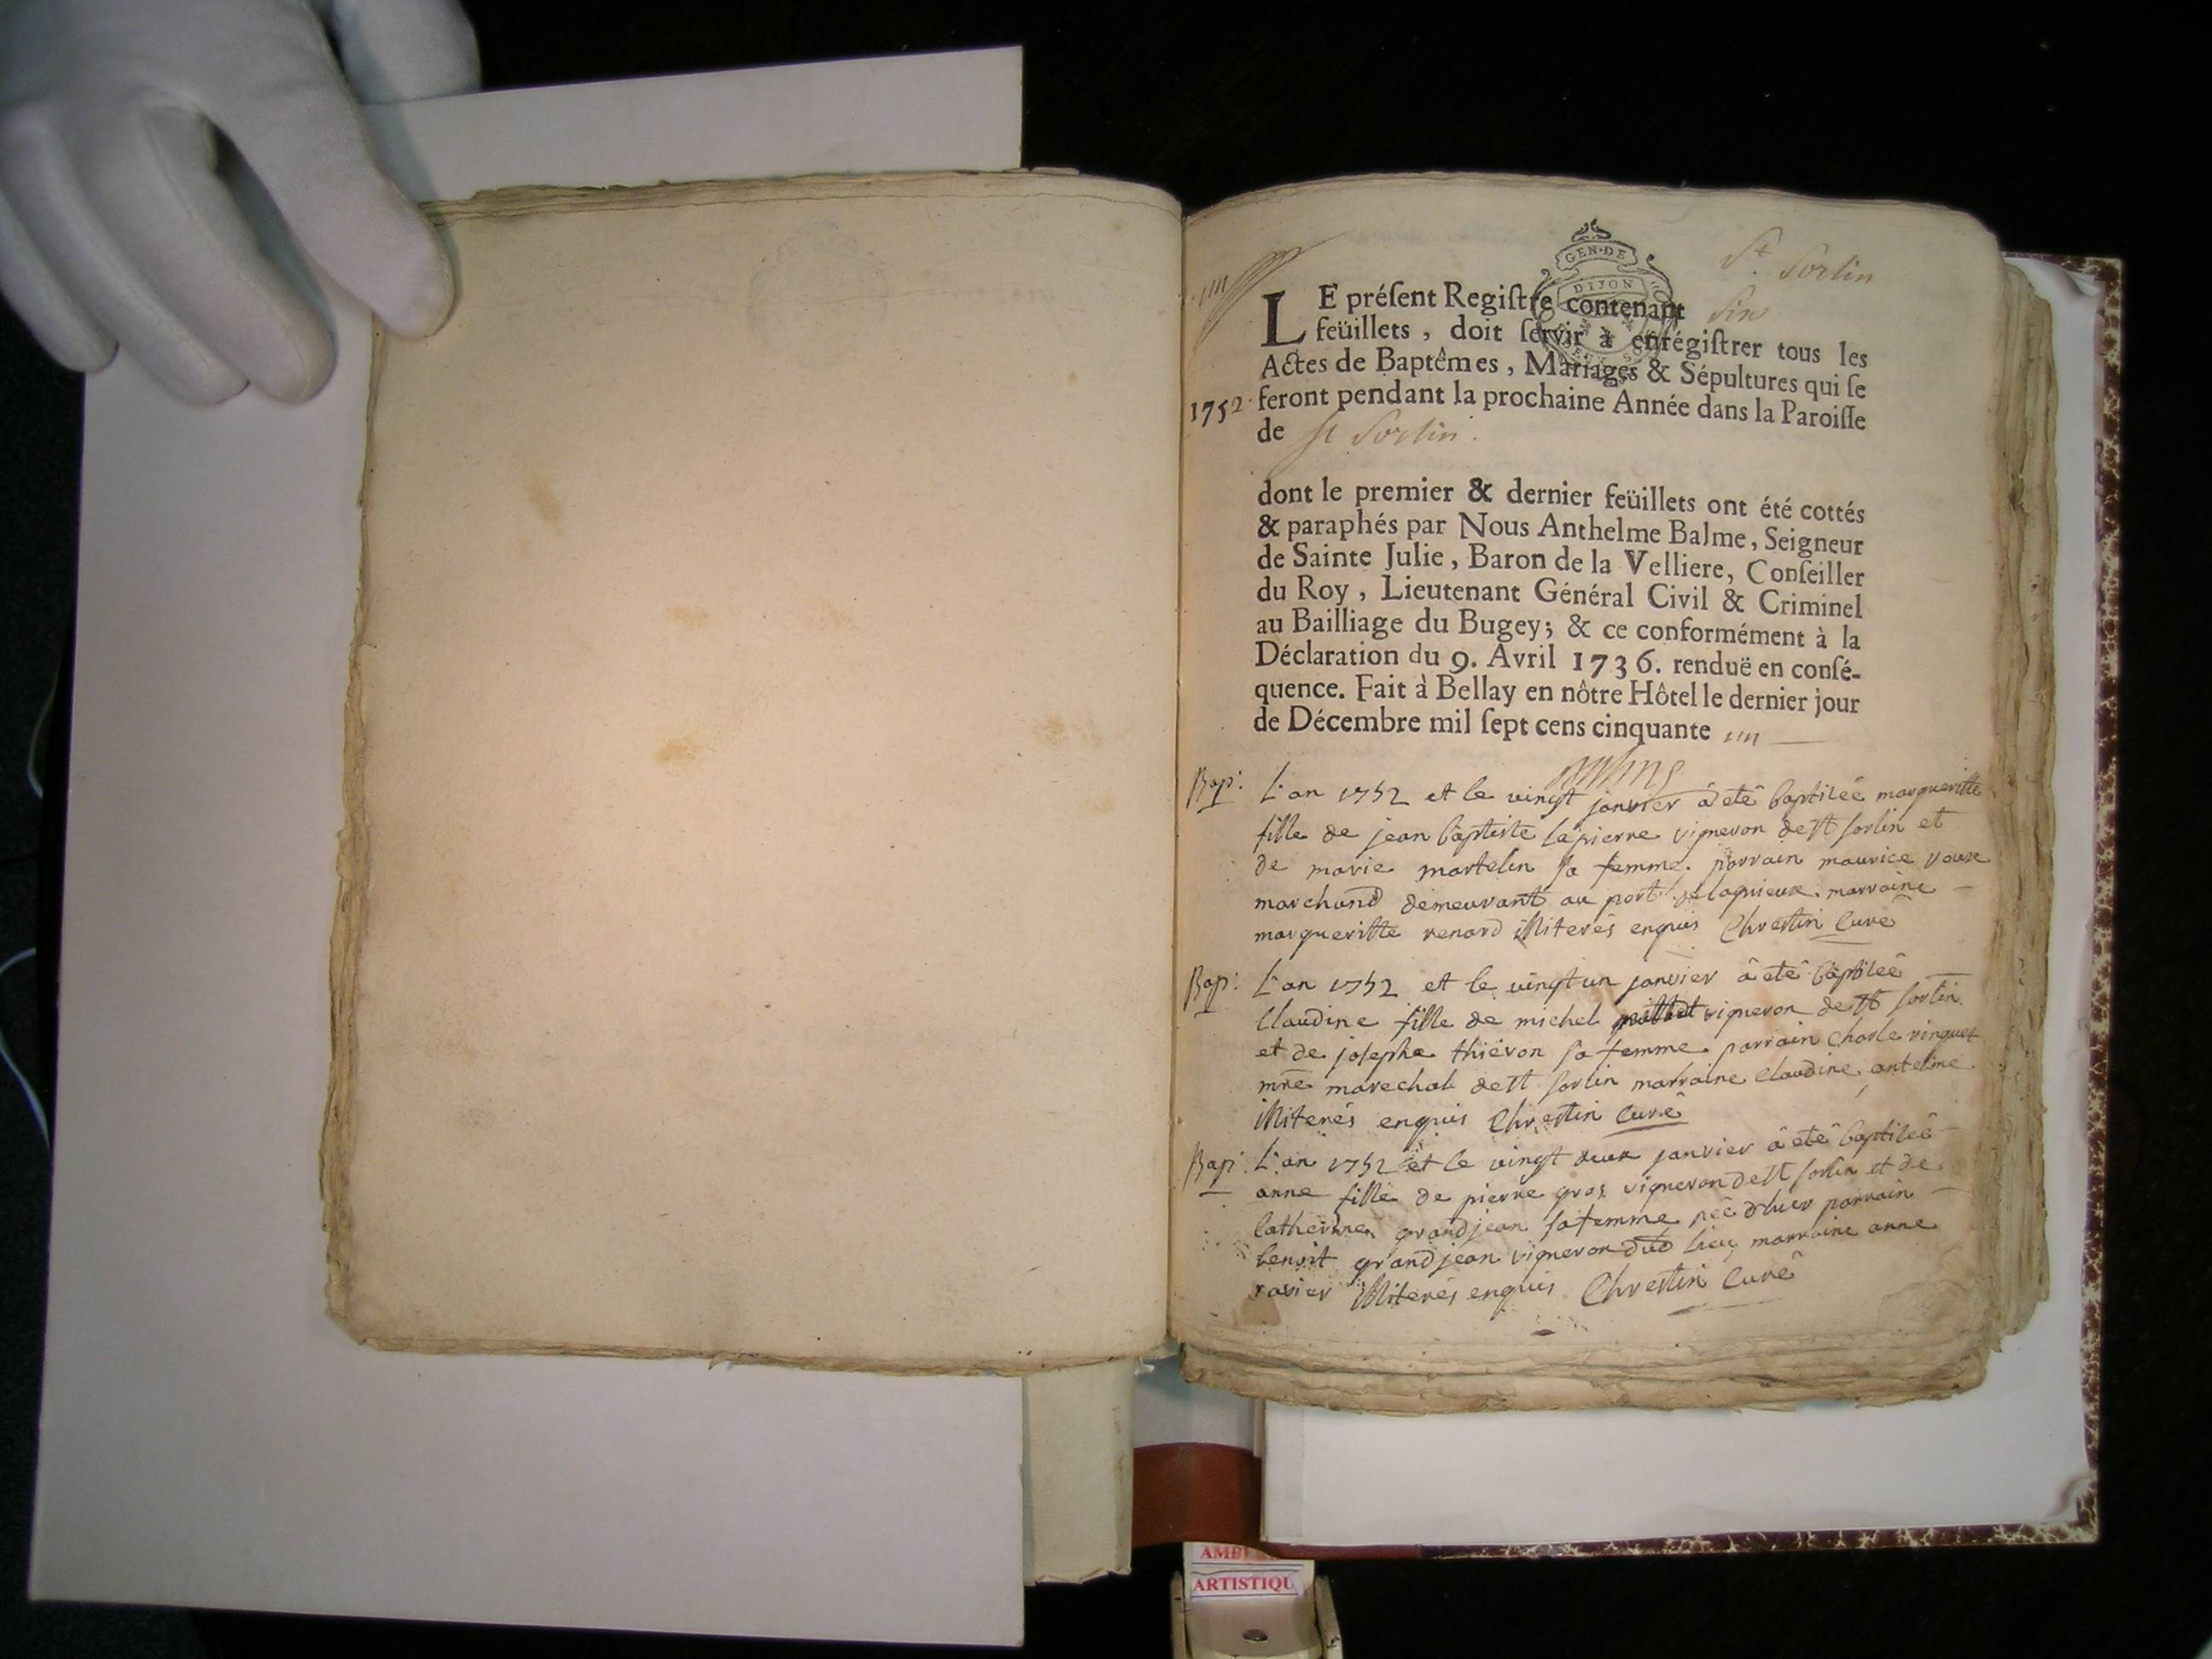 St. Sorlin
un
GEN·DE
DIJON
LE préſent Regiſtre contenant six
feüillets, doit ſervir à enrégiſtrer tous les
Actes de Baptêmes, Mariages & Sépultures qui ſe
1752 feront pendant la prochaine Année dans la Paroiſſe
de St Sorlin.
dont le premier & dernier feüillets ont été cottés
& paraphés par Nous Anthelme Balme, Seigneur
de Sainte Julie, Baron de la Velliere, Conſeiller
du Roy, Lieutenant Général Civil & Criminel
au Bailliage du Bugey; & ce conformément à la
Déclaration du 9. Avril 1736. renduë en conſé-
quence. Fait à Bellay en nôtre Hôtel le dernier jour
de Décembre mil ſept cens cinquante un
Bap: L'an 1752 et le vingt janvier â eté baptisée margueritte
fille de jean baptiste lapierre vigneron de st sorlin et
de marie martelin sa femme. parrain maurice roux
marchand demeurant au port de lagnieux. marraine
margueritte renard illiterés enquis Chrestin Curé
Bap: L'an 1752 et le vingt un janvier â eté baptisée
Claudine fille de michel vigneron de st sorlin
et de josephe thiévon sa femme parrain Charle vinguet
mre marechal de st sorlin marraine Claudine antelme
illiterés enquis Chrestin Curé
Bap: L'an 1752 et le vingt deux janvier â eté baptisée
anne fille de pierre gros vigneron de st sorlin et de
Catherine grandjean sa femme parrain
benoit grandjean vigneron dud lieu marraine anne
ravier illiterés enquis Chrestin Curé
ARTISTIQU